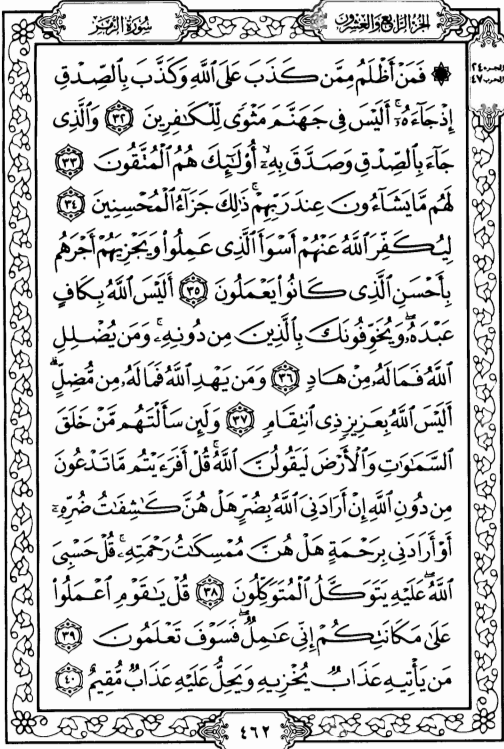 سُورَةُ الزُّمَرِ
الجُزءُ الرَّابِعُ وَالعِشْرُونَ
۞ فَمَنْ أَظْلَمُ مِمَّن كَذَبَ عَلَى ٱللَّهِ وَكَذَّبَ بِٱلصِّدْقِ
إِذْ جَآءَهُۥٓ ۚ أَلَيْسَ فِى جَهَنَّمَ مَثْوًى لِّلْكَٰفِرِينَ ٣٢ وَٱلَّذِى
جَآءَ بِٱلصِّدْقِ وَصَدَّقَ بِهِۦٓ ۙ أُو۟لَٰٓئِكَ هُمُ ٱلْمُتَّقُونَ ٣٣
لَهُم مَّا يَشَآءُونَ عِندَ رَبِّهِمْ ۚ ذَٰلِكَ جَزَآءُ ٱلْمُحْسِنِينَ ٣٤
لِيُكَفِّرَ ٱللَّهُ عَنْهُمْ أَسْوَأَ ٱلَّذِى عَمِلُوا۟ وَيَجْزِيَهُمْ أَجْرَهُم
بِأَحْسَنِ ٱلَّذِى كَانُوا۟ يَعْمَلُونَ ٣٥ أَلَيْسَ ٱللَّهُ بِكَافٍ
عَبْدَهُۥ ۖ وَيُخَوِّفُونَكَ بِٱلَّذِينَ مِن دُونِهِۦ ۚ وَمَن يُضْلِلِ
ٱللَّهُ فَمَا لَهُۥ مِنْ هَادٍ ٣٦ وَمَن يَهْدِ ٱللَّهُ فَمَا لَهُۥ مِن مُّضِلٍّ ۗ
أَلَيْسَ ٱللَّهُ بِعَزِيزٍ ذِى ٱنتِقَامٍ ٣٧ وَلَئِن سَأَلْتَهُم مَّنْ خَلَقَ
ٱلسَّمَٰوَٰتِ وَٱلْأَرْضَ لَيَقُولُنَّ ٱللَّهُ ۚ قُلْ أَفَرَءَيْتُم مَّا تَدْعُونَ
مِن دُونِ ٱللَّهِ إِنْ أَرَادَنِىَ ٱللَّهُ بِضُرٍّ هَلْ هُنَّ كَٰشِفَٰتُ ضُرِّهِۦٓ
أَوْ أَرَادَنِى بِرَحْمَةٍ هَلْ هُنَّ مُمْسِكَٰتُ رَحْمَتِهِۦ ۚ قُلْ حَسْبِىَ
ٱللَّهُ ۖ عَلَيْهِ يَتَوَكَّلُ ٱلْمُتَوَكِّلُونَ ٣٨ قُلْ يَٰقَوْمِ ٱعْمَلُوا۟
عَلَىٰ مَكَانَتِكُمْ إِنِّى عَٰمِلٌ ۖ فَسَوْفَ تَعْلَمُونَ ٣٩
مَن يَأْتِيهِ عَذَابٌ يُخْزِيهِ وَيَحِلُّ عَلَيْهِ عَذَابٌ مُّقِيمٌ ٤٠
٤٦٢